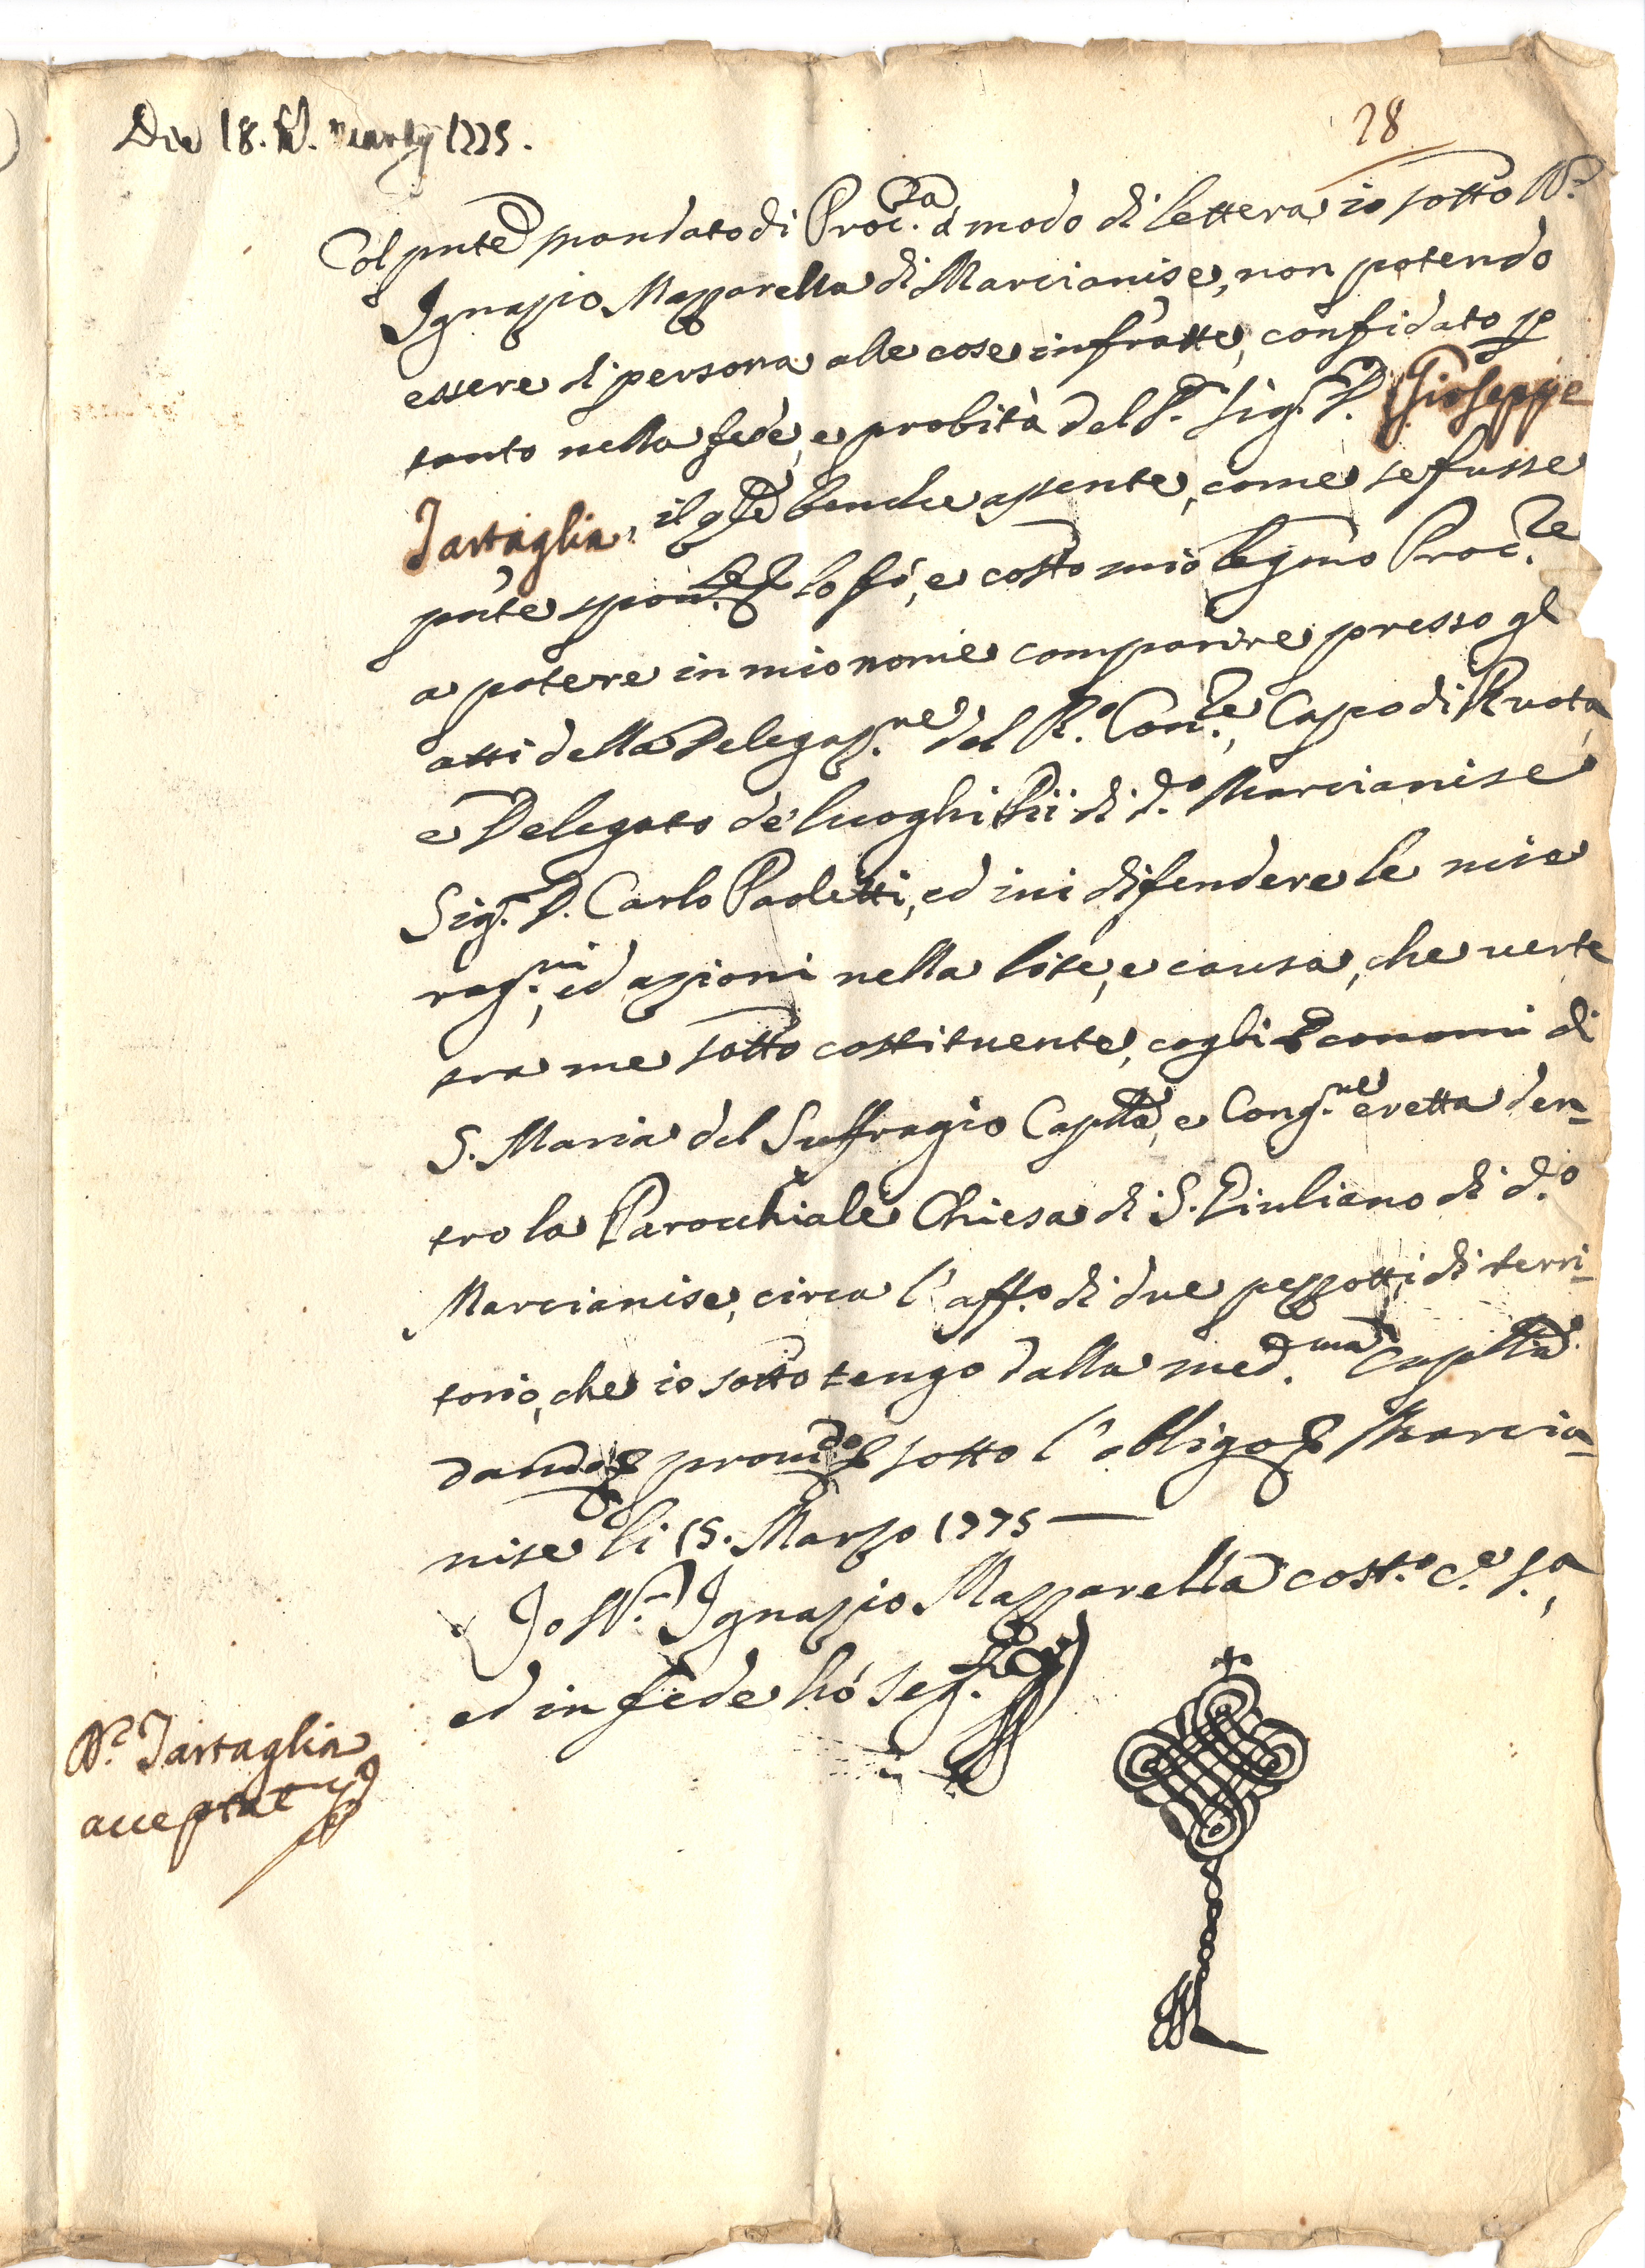 Die 18. M. Martij 1775.
28
Col pnte mandato di Proc.ra a modo di lettera io sotto N.r
Ignazio Mazzarella di Marcianise, non potendo
essere di persona alle cose infratte, confidato p
tanto nella fede, e probità del S.r Sig.r D. Gioseppe
Tartaglia, il qle benche assente, come se fusse
pnte spon.te lo fò, e costo mio legmo Proc.re
a potere in mio nome comparire presso gl
atti della Delegaz.ne del R.o Con.re, Capo di Ruota,
e Delegato de' luoghi Pii di d.o Marcianise
Sig.r D. Carlo Paoletti, ed ivi difendere le mie
rag.ni, ed azioni nella lite, e causa, che verte
tra me sotto costituente, cogli Economi di
S. Maria del Suffragio Capplla, e Cong.ne eretta den-
tro la Parocchiale Chiesa di S. Giuliano di d.o
Marcianise, circa l'aff.o di due pezzotti di terri-
torio, che io sotto tengo dalla med.ma Capplla.
dando & prom.do & sotto l'obligo & Marcia-
nise li 15. Marzo 1775 —
Io N.r Ignazio Mazzarella cost.o c.e s.a,
ed in fede hò seg.
N.r Tartaglia
acceptat